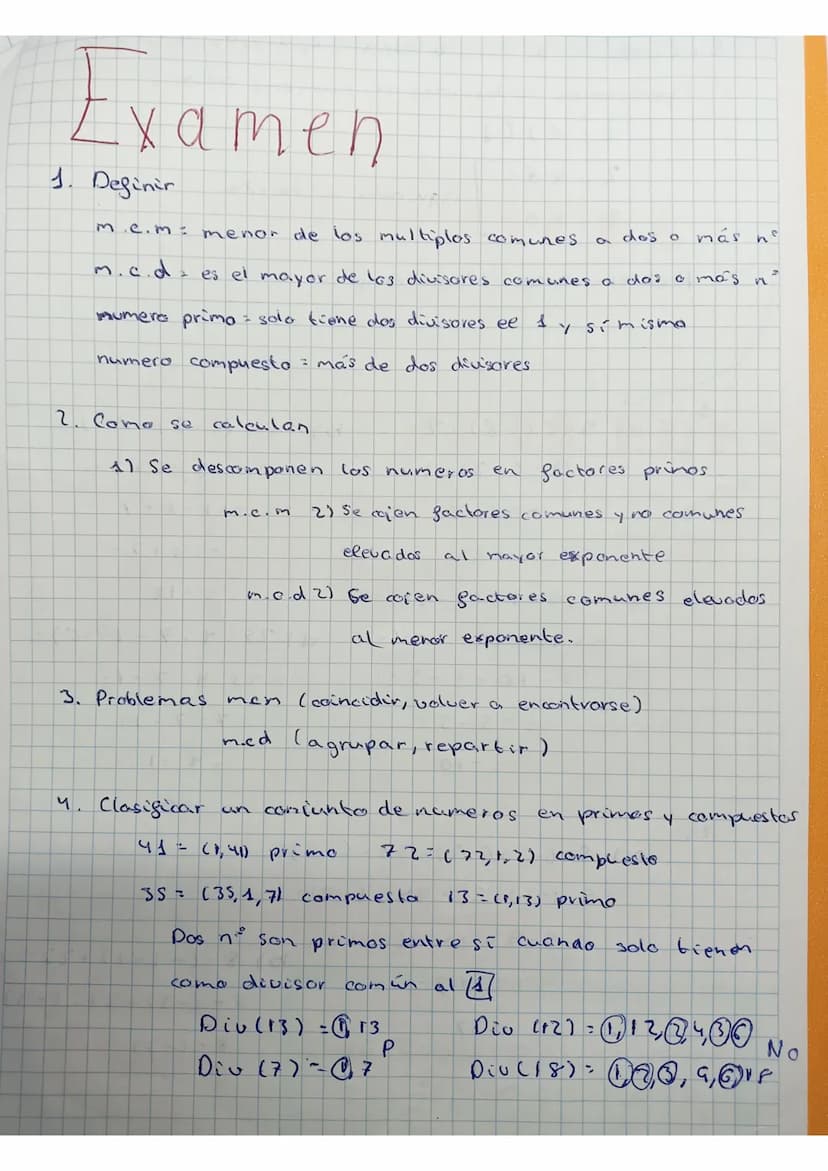 Examen
1. Definir
m.c.m = menor de los multiplos comunes a dos o más nº
m.c.d = es el mayor de los divisores comunes a dos o más nº
numero primo = solo tiene dos divisores ee 1 y sí mismo
numero compuesto = más de dos divisores
2. Como se calculan
1) Se descomponen los numeros en factores primos
m.c.m 2) Se cojen factores comunes y no comunes
elevados al mayor exponente
m.c.d 2) Se cojen factores comunes elevados
al menor exponente.
3. Problemas mcm (coincidir, volver a encontrarse)
mcd (agrupar, repartir)
4. Clasificar un conjunto de numeros en primos y compuestos
41 = (1,41) primo 72 = (72,1,2) compuesto
35 = (35,1,7) compuesto 13 = (1,13) primo
Dos nº son primos entre sí cuando solo tienen
como divisor común al 1
Div (13) = 1, 13 Div (12) = 1, 12, 2, 4, 3, 6 No
P
Div (7) = 1, 7 Div (18) = 1, 2, 3, 9, 6, 18